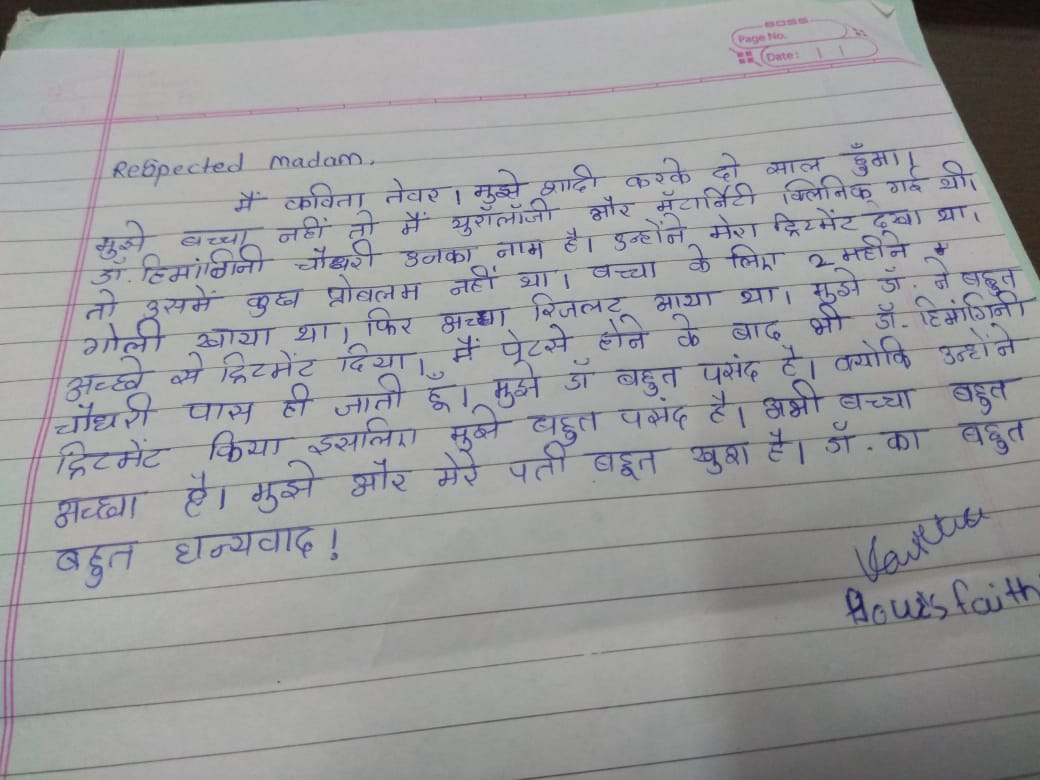 BOSS
Page No.
Date:
Respected madam,
मैं कविता तेवर। मुझे शादी करके दो साल हुँमा।
मुझे बच्चा नहीं तो मैं युरॉलॉजी और मॅटर्निटी क्लिनिक गई थी।
डॉ. हिमांगिनी चौधरी उनका नाम है। उन्होंने मेरा ट्रिटमेंट देखा था।
तो उसमें कुछ प्रोबलम नहीं था। बच्चा के लिए 2 महीने
गोली खाया था। फिर अच्छा रिजलट आया था। मुझे डॉ. ने बहुत
अच्छे से ट्रिटमेंट दिया। मैं प्रेटसे होने के बाद भी डॉ. हिमांगिनी
चौधरी पास ही जाती हूँ। मुझे डॉ बहुत पसंद है। क्योकि उन्होंने
ट्रिटमेंट किया इसलिए मुझे बहुत पसंद है। अभी बच्चा बहुत
अच्छा है। मुझे और मेरे पती बहूत खुश है। डॉ. का बहुत
बहुत धन्यवाद!
Yours faith